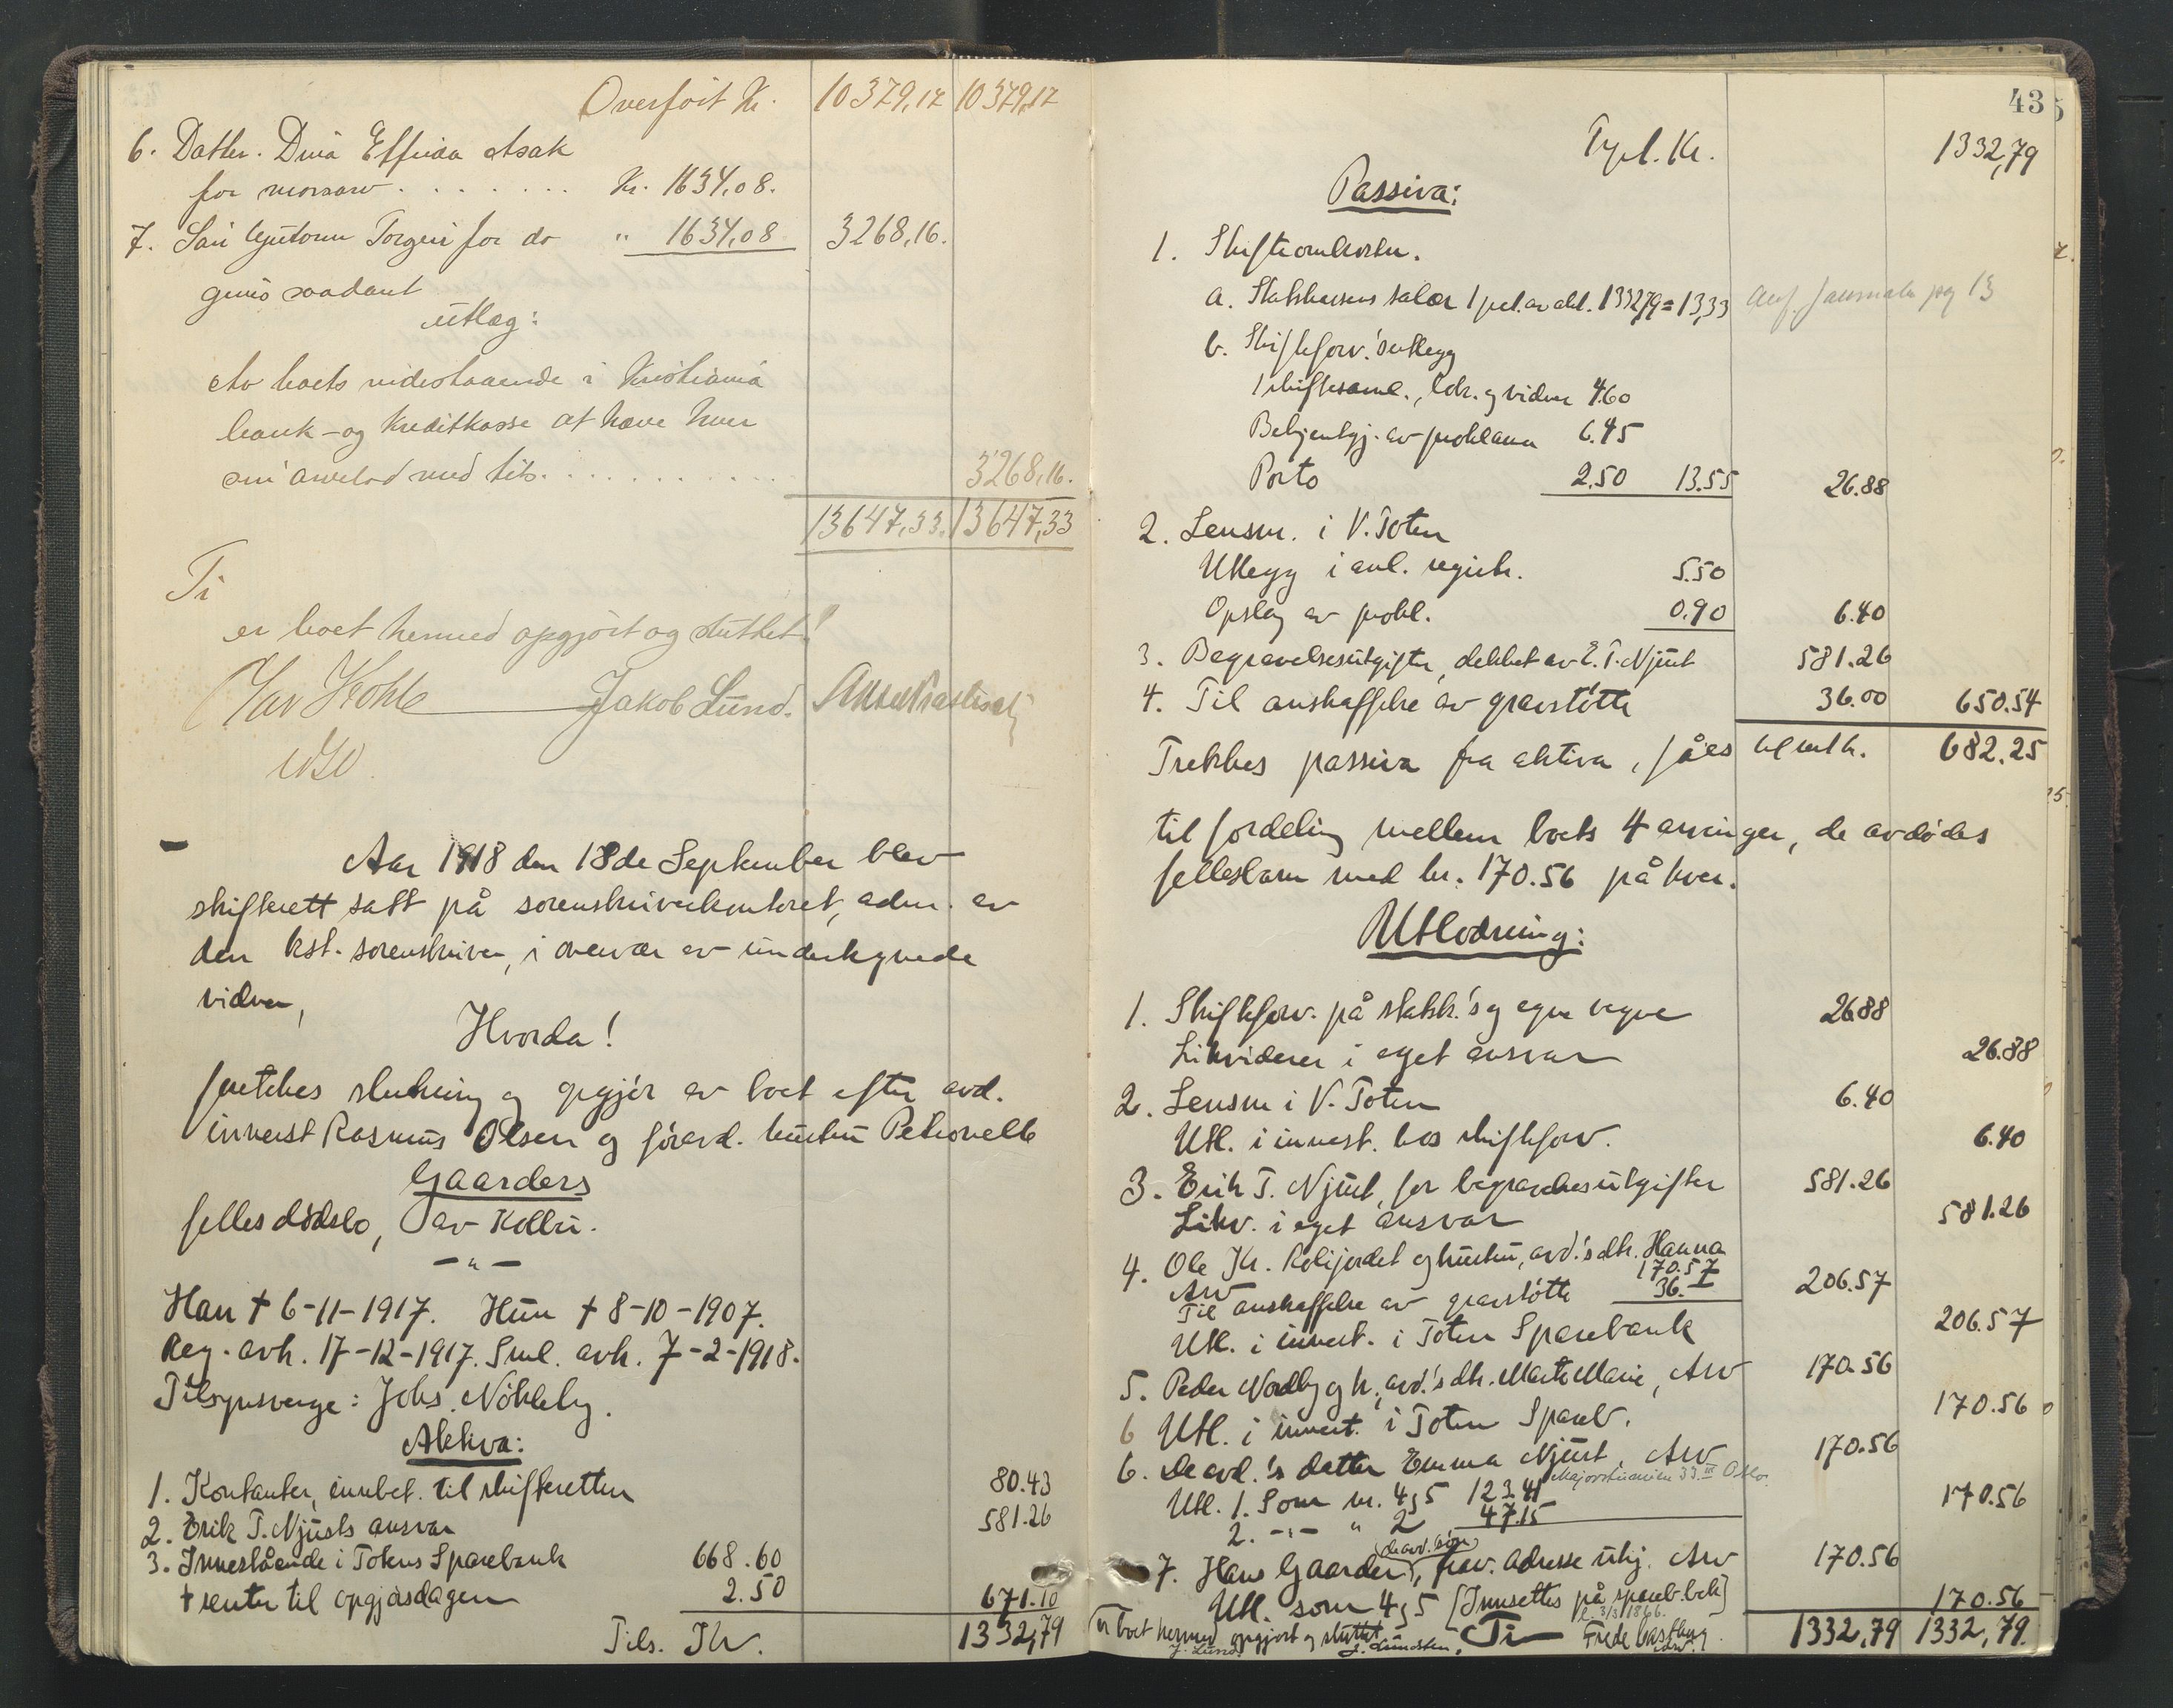 Overført Kr. 10379,17 10379,17
6. Datter. Dina Elfrida Asak
for morsarv . . . . . . . Kr. 1634,08.
7. Søn Guttorm Torgeir for do " 1634,08 3268,16.
givis saadant
Utlæg:
Av boets indestaaende i Kristiania
bank- og Kreditkasse at hæve hver
sin arvelod med tils. . . . . . . . . . . 3268,16.
13647,33. 13647,33
Ti
er boet hermed opgjort og sluttet!
Jakob Lund.
Aar 1918 den 18de September blev
skifterett satt på sorenskriverkontoret, adm. av
den kst. sorenskriver, i overvær av undertegnede
vidner,
Hvorda!
foretokes slutning og opgjør av boet efter avd.
inderst Rasmus Olsen og føravd. hustru Petronelle
Gaarders
felles dødsbo, av Kolbu.
— " —
Han † 6-11-1917. Hun † 8-10-1907.
Reg. avh. 17-12-1917. Sml. avh. 7-2-1918.
Tilsynsverge: Johs. Nøkleby.
Aktiva:
1. Kontanter, innbet. til skifteretten 80.43
2. Erik T. Njusts ansvar 581.26
3. Innestående i Totens Sparebank 668.60
+ renter til opgjørsdagen 2.50 671.10
Tils. Kr. 1332,79
43
Tfl. Kr. 1332,79
Passiva:
1. Skifteomkostn.
a. Statskassens salær 1 pct. av akt. 1332,79 = 13,33
b. Skifteforv.'s utlegg
1 skiftesaml., lok. og vidner 4.60
Bekjentgj. av proklama 6.45
Porto 2.50 13.55 26.88
2. Lensm. i V. Toten
Utlegg i anl. registr. 5.50
Opslag av prokl. 0.90 6.40
3. Begravelsesutgifter, dekket av E. T. Njust 581.26
4. Til anskaffelse av gravstøtte 36.00 650.54
Trekkes passiva fra aktiva, fåes 682.25
til fordeling mellem boets 4 arvinger, de avdødes
fellesbarn med kr. 170.56 på hver.
Utlodning:
1. Skifteforv. på statsk.'s og egne vegne 26.88
Likviderer i eget ansvar 26.88
2. Lensm i V. Toten 6.40
Utl. i innest. hos skifteforv. 6.40
3. Erik T. Njust, for begravelsesutgifter 581.26
Likv. i eget ansvar 581.26
4. Ole Kr. Kolijordet og hustru, avd.'s dtr. Hanna
Arv 170.57
Til anskaffelse av gravstøtte 36.- 206.57
Utl. i innest. i Toten Sparebank 206.57
5. Peder Nordby og h., avd.'s dtr. Marte Marie, Arv 170.56
Utl. i innest. i Toten Spareb. 170.56
6. De avd.'s datter Emma Njust, Arv 170.56
Oslo.
Utl. 1. Som nr. 4 og 5 123.41 170.56
2. -"- " 2 47.15
(de avd. søn)
7. Hans Gaarder, frav. adresse ubj. Arv 170.56
Utl. som 4 og 5 [Innsettes på spareb.bok] 170.56
1332,79 1332,79.
er boet hermed opgjort og sluttet. Ti
J. Lund.